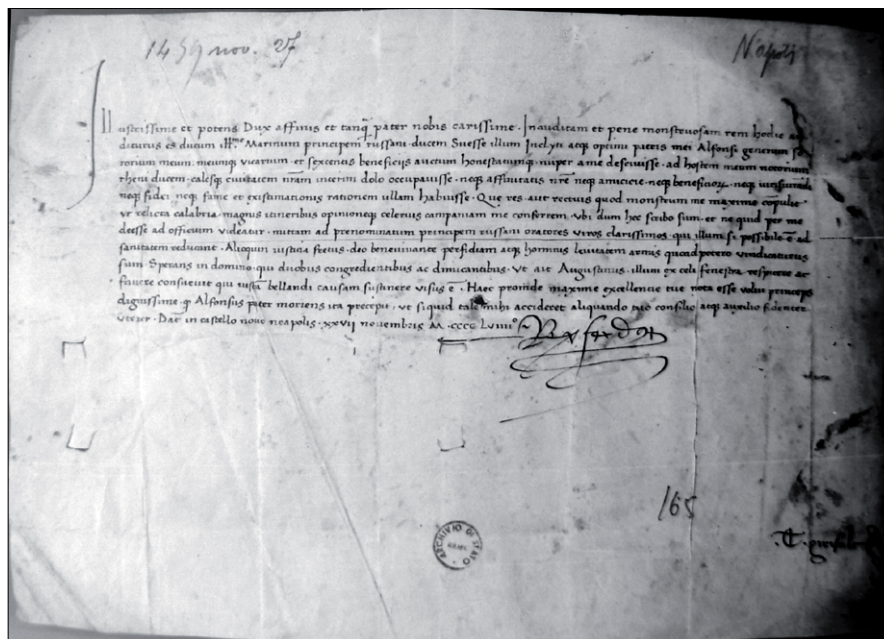 1459 nov. 27
Napoli
Illustrissime et potens Dux affinis et tanq̃ pater nobis carissime · Inauditam et pene monstruosam rem hodie
diturus es ducum illmẽ Marinum principem russani ducem Suesse illum Inclyti atq optimi patris mei Alfonsi generum so
rorium meum meumq vicarium et sexcentis beneficijs auctum honestatumq nuper a me desciuisse · ad hostem meum notorium
ducem calesq ciuitatem nrãm interim dolo occupauisse · neq affinitatis nrẽ neq amicicie neq beneficiorꝝ neq iurisiurandi
neq fidei neq fame et existimationis rationem ullam habuisse · Que res aut rectius quod monstrum me maxime compulit
vt relicta calabria magnis itineribus opinioneq celerius campaniam me conferrem vbi dum hec scribo sum · et ne quid per me
deesse ad officium videatur · mittam ad prenominatum principem russani oratores viros clarissimos qui illum si possibile ẽ ad
sanitatem reducant · Alioquin iusticia fretus deo beniuolente perfidiam atq hominis leuitatem armis quoad potero vindicaturus
sum Sperans in domino qui duobus congredientibus ac dimicantibus vt ait Augustinus illum ex celi fenestra respicere ac
fauere consueuit qui iustã bellandi causam sustinere visus ẽ · Haec proinde maxime excellencie tue nota esse volui princeps
dignissime q Alfonsus pater moriens ita precepit vt si quid tale mihi accideret aliquando tuo consilio atq auxilio fidenter
vterer · Dat in castello nouo neapolis · xxvii nouembris M · cccc Lviiiiº
Rex ferdo
165
ARCHIVIO DI STATO